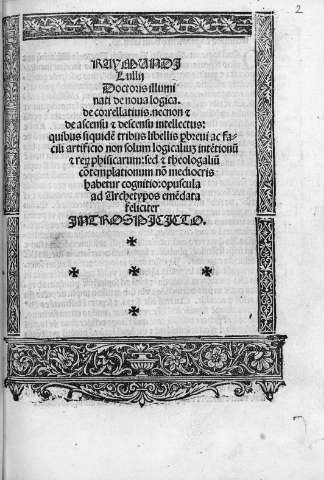 2
RAYMANDI
Lullij
Doctoris illumi
nati de noua logica.
de correllatiuis. necnon ⁊
de ascensu ⁊ descensu intellectus:
quibus siquidē tribus libellis pbreui ac fa-
cili artificio non solum logicaliuꝫ intētionū
⁊ reꝝ phisicarum: sed ⁊ theologaliū
cōtemplationum nō mediocris
habetur cognitio: opuscula
ad Archetypos emēdata
feliciter
INTROSPICITO.